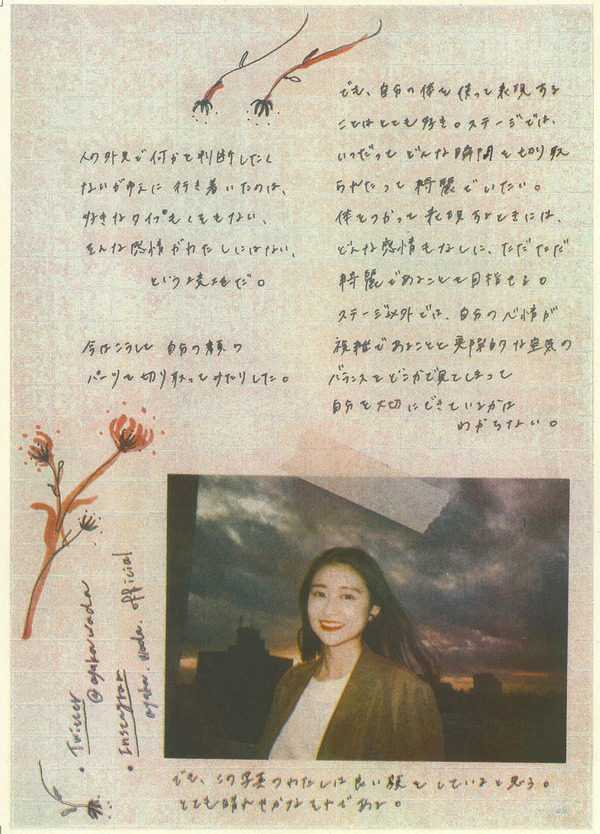 人の外見で何かを判断したく
ないがゆえに行き着いたのは、
好きなタイプもくそもない、
そんな感情がわたしにはない、
という境地だ。
今はこうして自分の顔の
パーツを切り取ってみたりした。
でも、自分の体を使って表現する
ことはとても好き。ステージでは、
いつだってどんな瞬間を切り取
られたって綺麗でいたい。
体をつかって表現するときには、
どんな感情もなしに、ただただ
綺麗であることを目指せる。
ステージ以外では、自分の心情が
複雑であることと実際的な空気の
バランスをどこかで見てしまって
自分を大切にできているかは
わからない。
• Twitter
@ayakawada
• Instagram
ayaka.wada.official
でも、この写真のわたしは良い顔をしていると思う。
とても晴れやかなもので